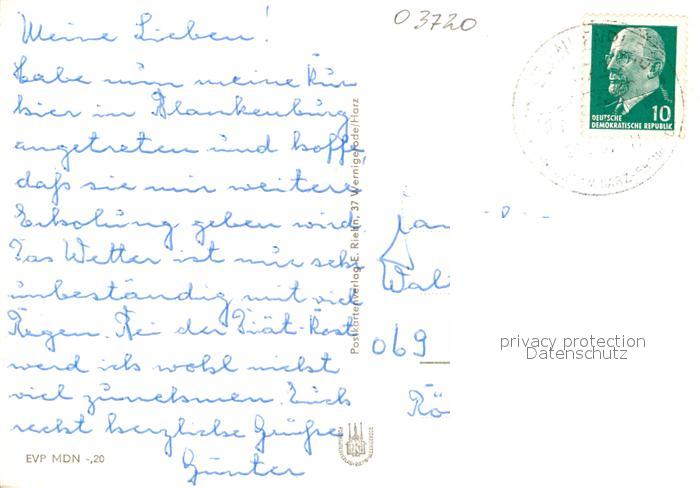 03720
Meine Lieben!
Habe nun meine Kur
hier in Blankenburg
angetreten und hoffe,
daß sie mir weitere
Erholung geben wird.
Das Wetter ist nur sehr
unbeständig mit viel
Regen. Bei der Diät-Kost
werd ich wohl nicht
viel zunehmen. Euch
recht herzliche Grüße
Günter
EVP MDN -,20
Postkartenverlag E. Riehn, 37 Wernigerode/Harz
10
DEUTSCHE
DEMOKRATISCHE REPUBLIK
069
Rö
privacy protection
Datenschutz